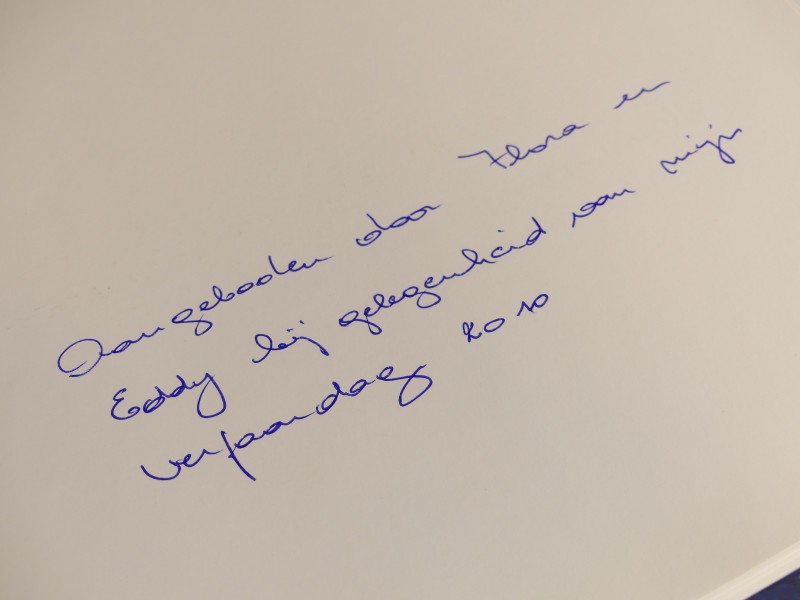 Aangeboden door Flora en
Eddy bij gelegenheid van mijn
verjaardag 2010